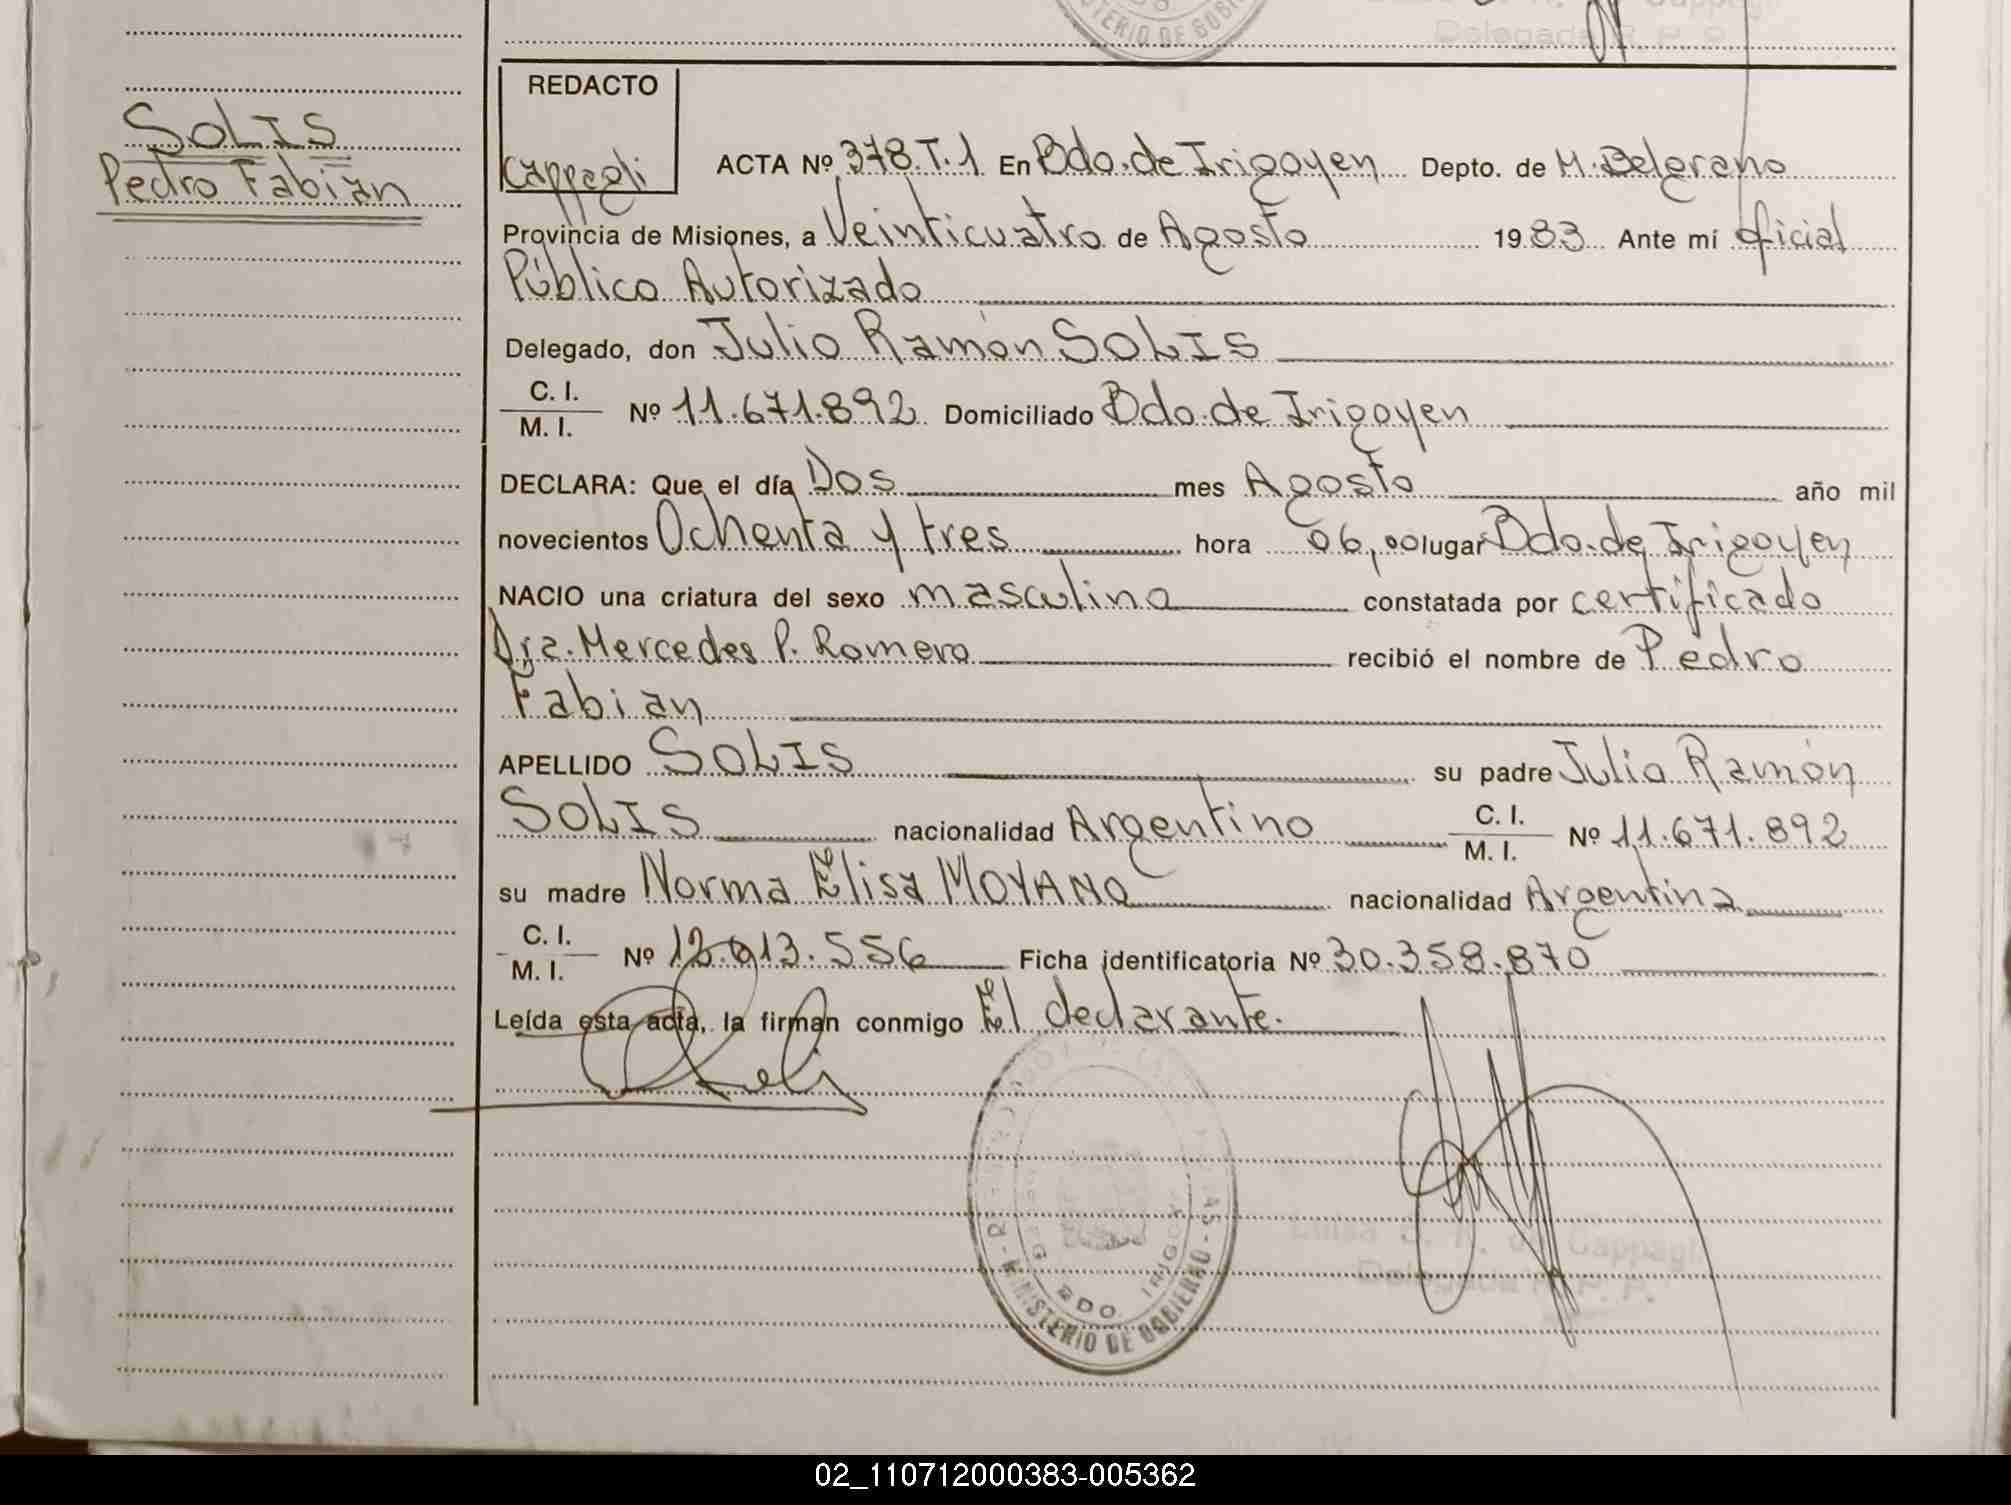 TERIO DE GOBI
Delegada R. P. P.
SOLIS
Pedro Fabián
REDACTO
Cappagli
ACTA Nº 378.T.1 En Bdo.de Irigoyen Depto. de M.Belgrano
Provincia de Misiones, a Veinticuatro de Agosto 1983 Ante mí oficial
Público Autorizado
Delegado, don Julio Ramón SOLIS
C. I.
M. I. Nº 11.671.892 Domiciliado Bdo.de Irigoyen
DECLARA: Que el día Dos mes Agosto año mil
novecientos Ochenta y tres hora 06,00 lugar Bdo.de Irigoyen
NACIO una criatura del sexo masculino constatada por certificado
Dra. Mercedes P. Romero recibió el nombre de Pedro
Fabian
APELLIDO SOLIS su padre Julio Ramón
SOLIS nacionalidad Argentino C. I. M. I. Nº 11.671.892
su madre Norma Elisa MOYANO nacionalidad Argentina
C. I.
M. I. Nº 13.013.556 Ficha identificatoria Nº 30.358.870
Leída esta acta, la firman conmigo El declarante.
MINISTERIO DE GOBIERNO
BDO. IRIGOY
Luisa J. R. de Cappagli
Delegada R. P. P.
02_110712000383-005362